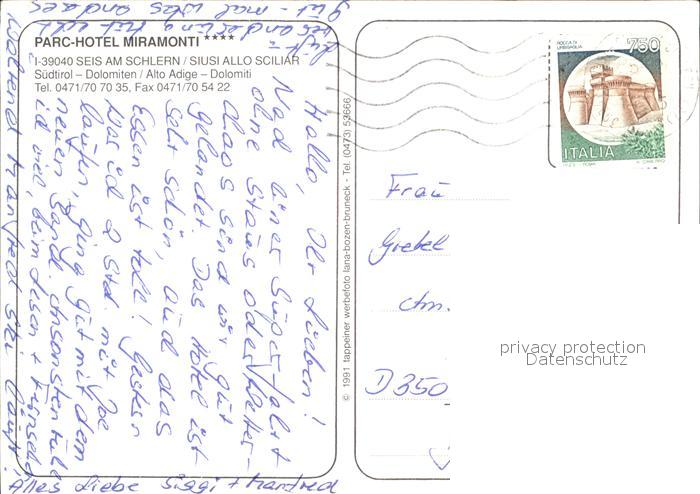 PARC-HOTEL MIRAMONTI ****
I-39040 SEIS AM SCHLERN / SIUSI ALLO SCILIAR
Südtirol – Dolomiten / Alto Adige – Dolomiti
Tel. 0471/70 70 35, Fax 0471/70 54 22
Hallo, Ihr Lieben!
Nach einer Superfahrt
ohne Staus oder Wetter-
chaos sind wir gut
gelandet. Das Hotel ist
sehr schön, und das
Essen ist toll! Gestern
war ich 2 Std. mit
laufen, ging gut mit dem
neuen Ansonsten tue
ich viel beim Lesen + Fernsehen
während Manfred Ski läuft!
gut - mal was anderes
Alles Liebe Siggi + Manfred
© 1991 tappeiner werbefoto lana-bozen-bruneck - Tel. (0473) 53666
ROCCA DI URBISAGLIA
750
ITALIA
Frau
Gretel
Am.
D 350
privacy protection
Datenschutz